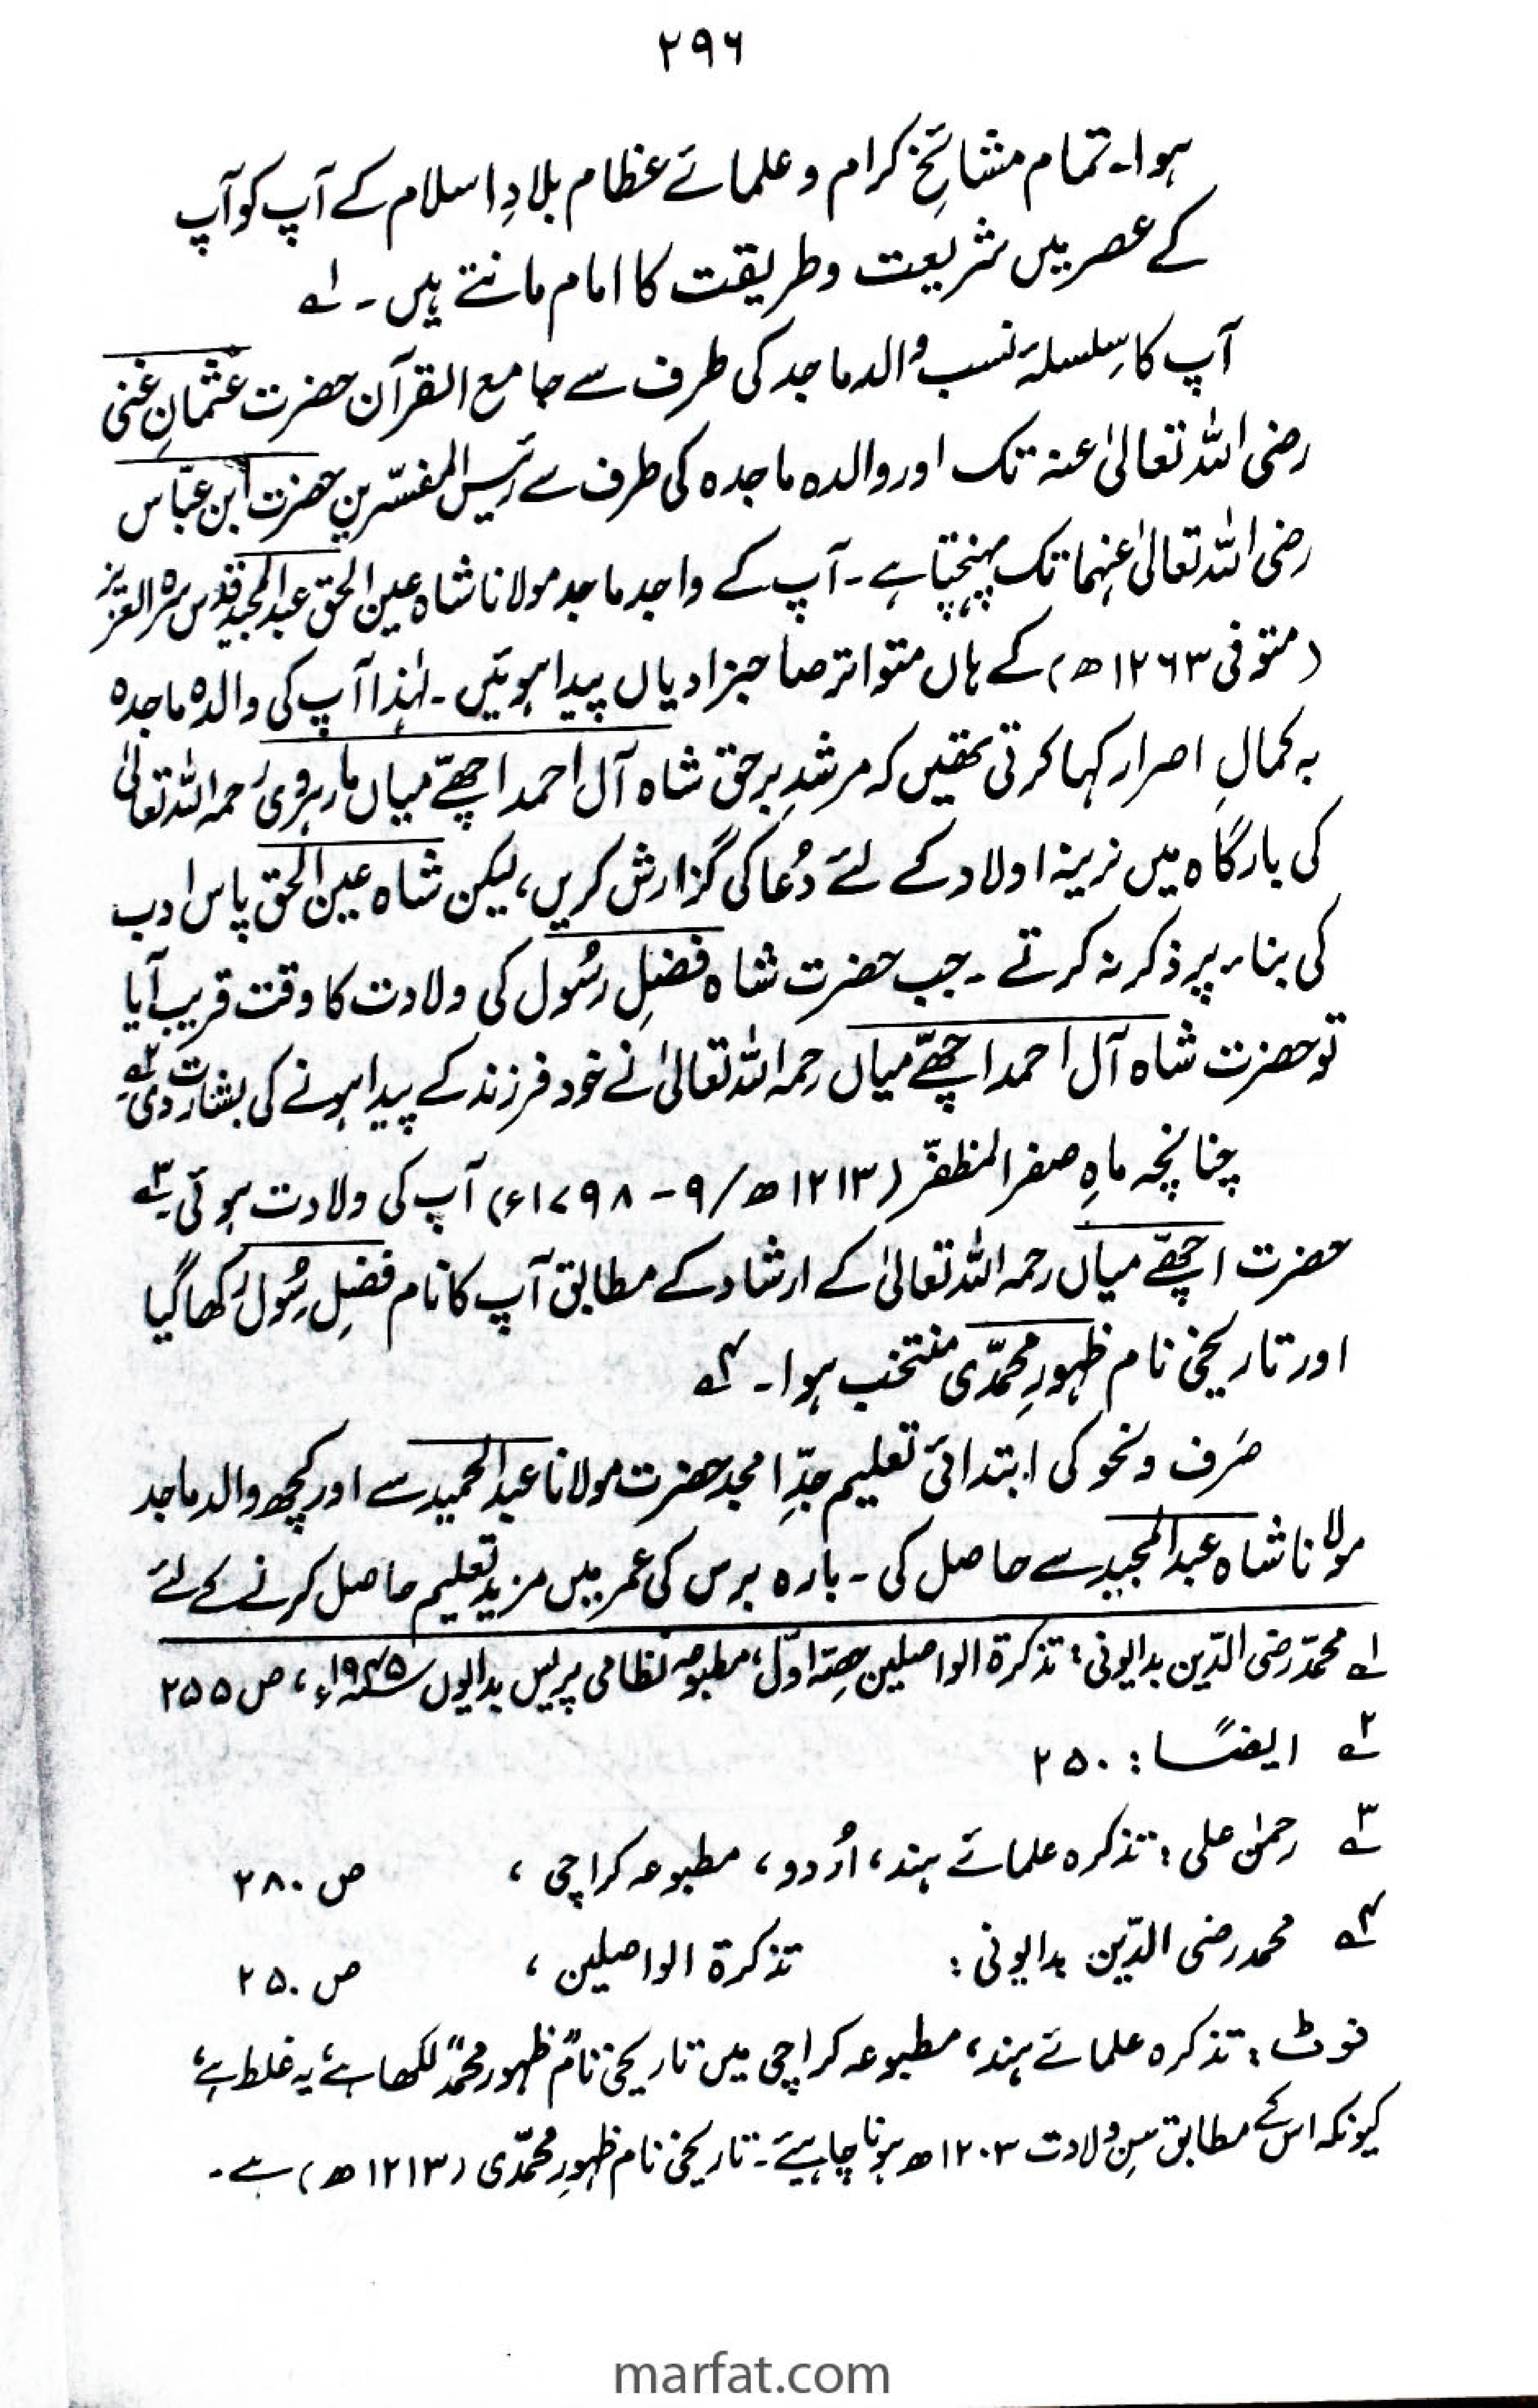 ۲۹۶
ہوا۔ تمام مشائخِ کرام و علمائے عظام بلادِ اسلام کے آپ کو آپ
کے عصر میں شریعت و طریقت کا امام مانتے ہیں۔ ۱؎
آپ کا سِلسلۂ نسب والد ماجد کی طرف سے جامع القرآن حضرت عثمانِ غنی
رضی اللہ تعالیٰ عنہ تک اور والدہ ماجدہ کی طرف سے رئیس المفسّرین حضرت ابن عبّاس
رضی اللہ تعالیٰ عنہما تک پہنچتا ہے۔ آپ کے واجد ماجد مولانا شاہ عین الحق عبدالمجید قدس سرہ العزیز
(متوفی ۱۲۶۳ھ) کے ہاں متواتر صاحبزادیاں پیدا ہوئیں۔ لہٰذا آپ کی والدہ ماجدہ
بہ کمالِ اصرار کہا کرتی تھیں کہ مرشدِ برحق شاہ آل احمد اچھّے میاں مارہروی رحمہ اللہ تعالیٰ
کی بارگاہ میں نرینہ اولاد کے لئے دُعا کی گزارش کریں، لیکن شاہ عین الحق پاس ادب
کی بناء پر ذکر نہ کرتے۔ جب حضرت شاہ فضلِ رسُول کی ولادت کا وقت قریب آیا
تو حضرت شاہ آل احمد اچھّے میاں رحمہ اللہ تعالیٰ نے خود فرزند کے پیدا ہونے کی بشارت دی۔ ۲؎
چنانچہ ماہِ صفر المظفّر (۱۲۱۳ھ/۹-۱۷۹۸ء) آپ کی ولادت ہوئی۔ ۳؎
حضرت اچھّے میاں رحمہ اللہ تعالیٰ کے ارشاد کے مطابق آپ کا نام فضلِ رسُول رکھا گیا
اور تاریخی نام ظہورِ محمّدی منتخب ہوا۔ ۴؎
صَرف و نحو کی ابتدائی تعلیم جدِّ امجد حضرت مولانا عبدالحمید سے اور کچھ والد ماجد
مولانا شاہ عبدالمجید سے حاصل کی۔ بارہ برس کی عمر میں مزید تعلیم حاصل کرنے کے لئے
۱؎ محمّد رضی الدّین بدایونی: تذکرۃ الواصلین حصّہ اوّل، مطبوعہ نظامی پریس بدایوں ۱۹۴۵ء، ص ۲۵۵
۲؎ ایضًا: ۲۵۰
۳؎ رحمٰن علی: تذکرہ علمائے ہند، اُردو، مطبوعہ کراچی، ص ۳۸۰
۴؎ محمد رضی الدّین بدایونی: تذکرۃ الواصلین، ص ۲۵۰
نوٹ: تذکرہ علمائے ہند، مطبوعہ کراچی میں تاریخی نام "ظہور محمّد" لکھا ہے، یہ غلط ہے،
کیونکہ اس کے مطابق سنِ ولادت ۱۲۰۳ھ ہونا چاہیئے۔ تاریخی نام ظہورِ محمّدی (۱۲۱۳ھ) ہے۔
marfat.com